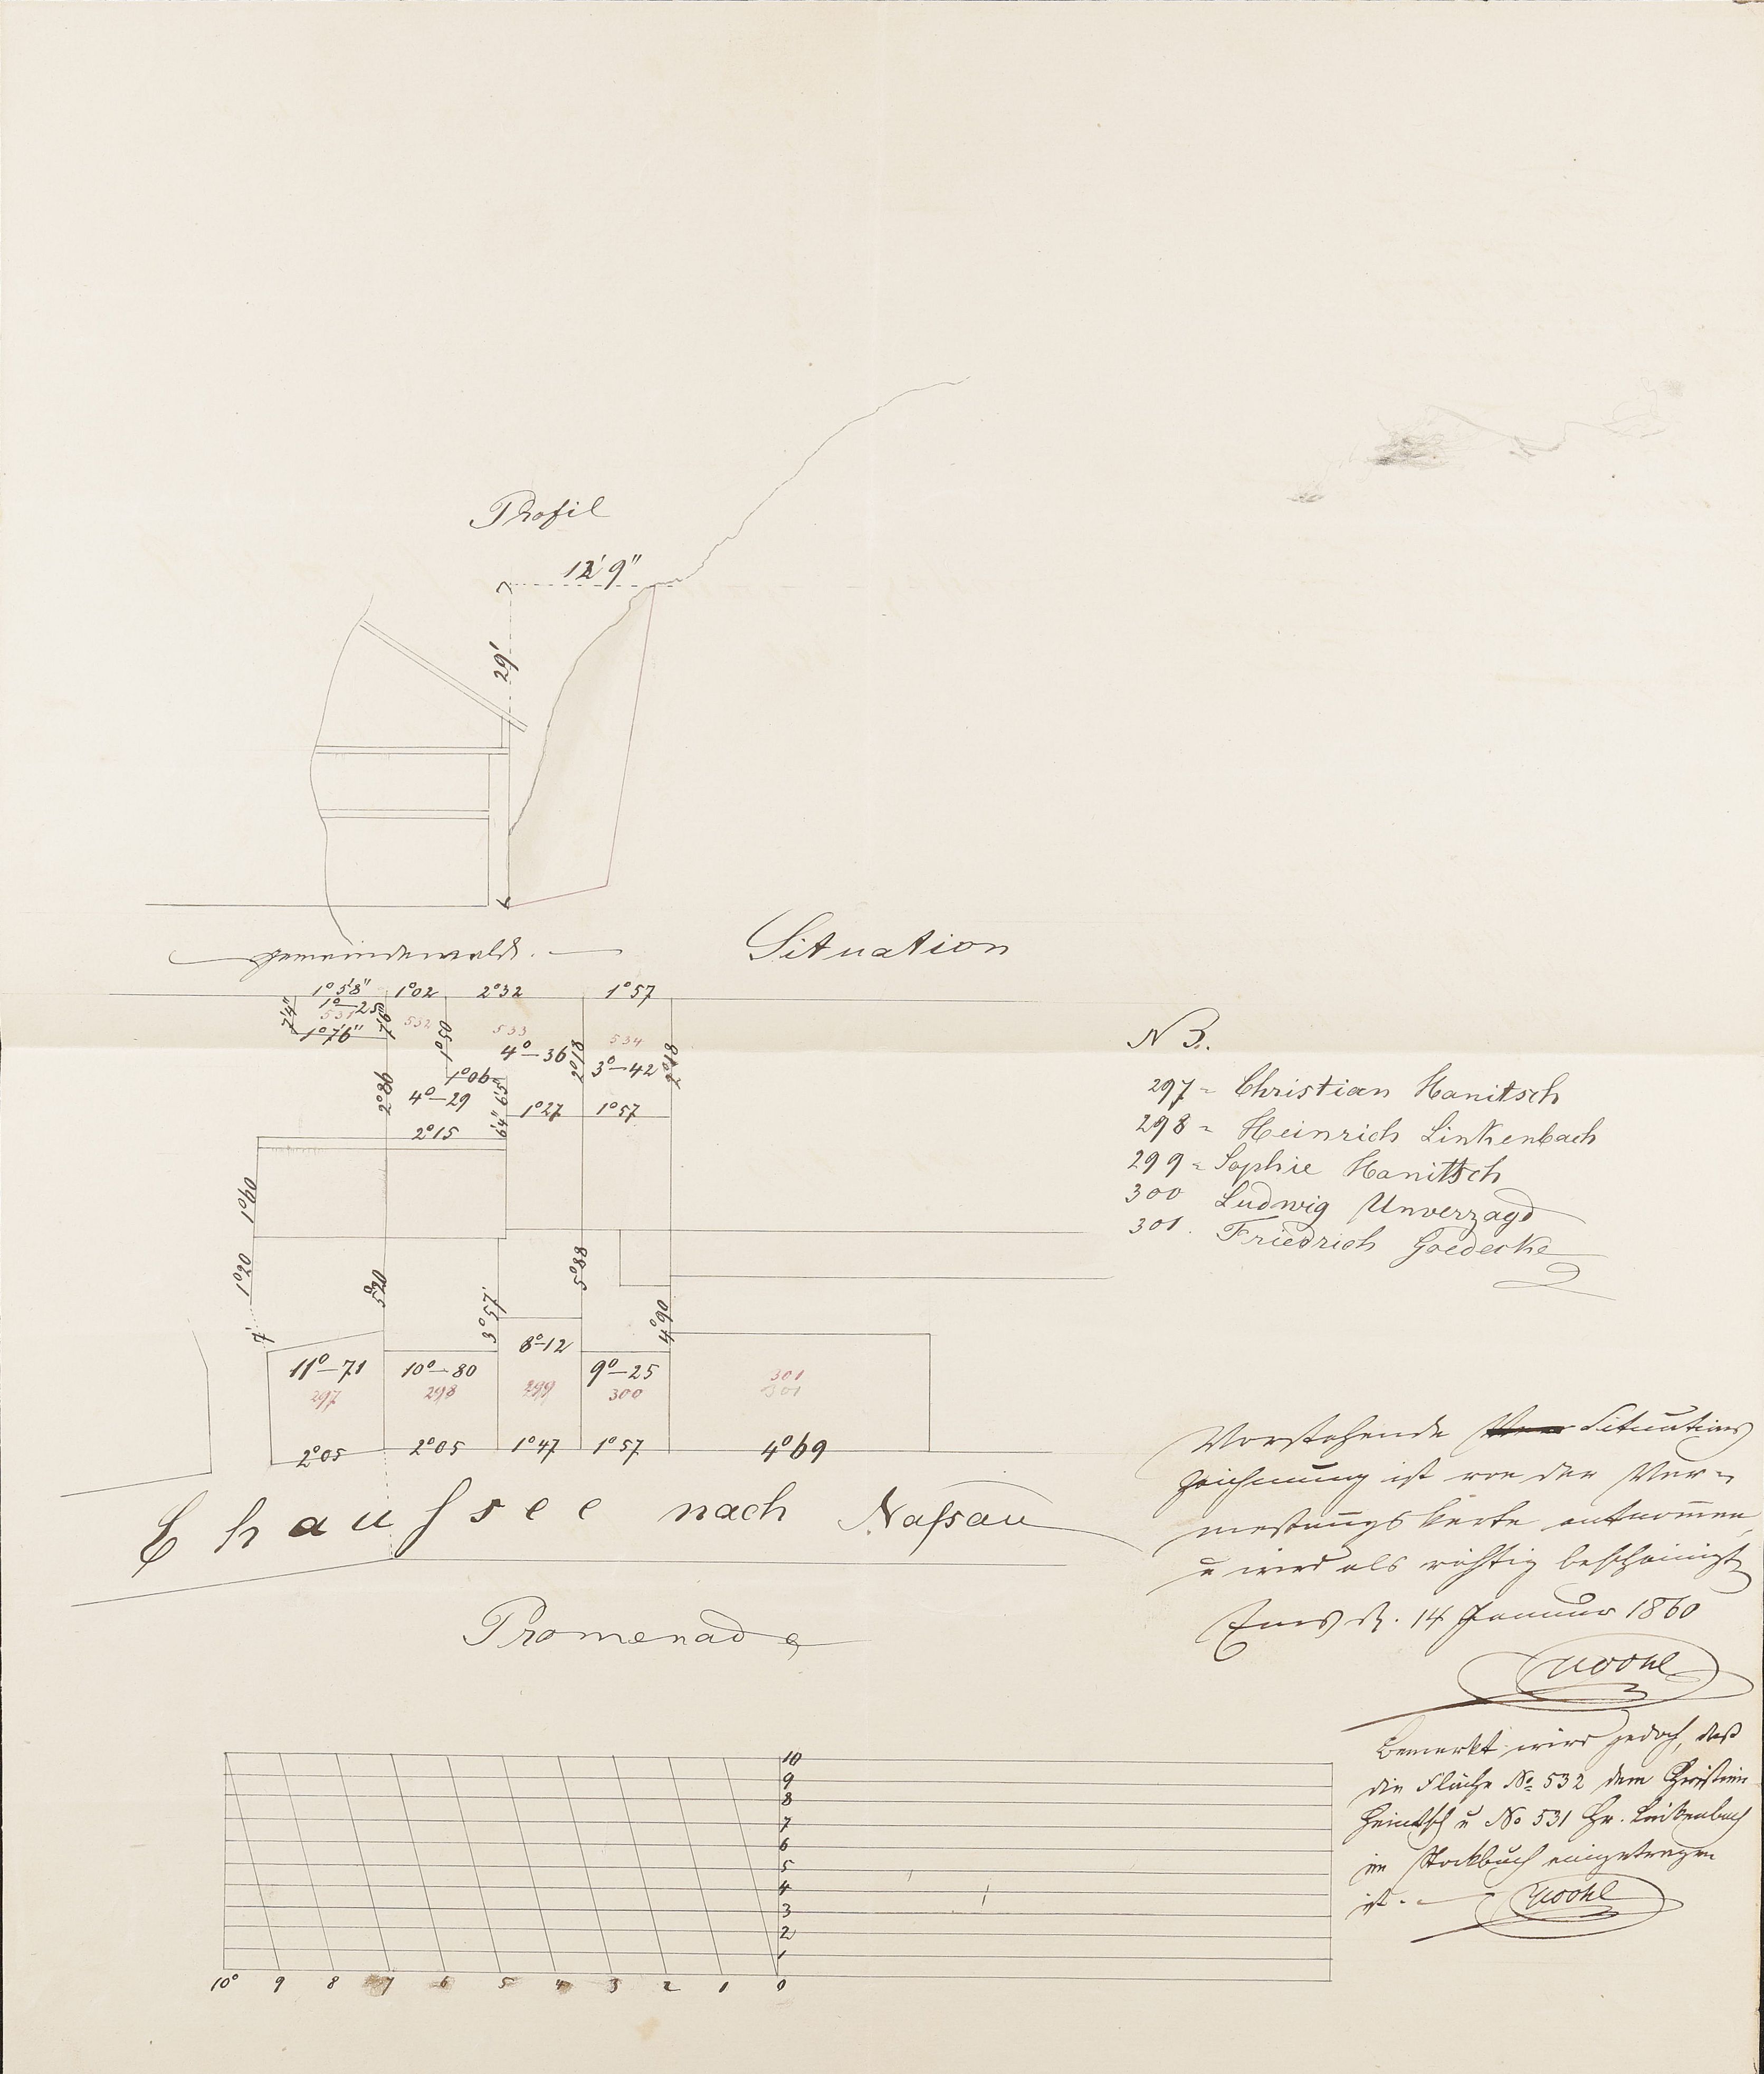 Profil
12' 9"
29'
Gemeindewald.
Situation
1°5'8" 1°02 2°32 1°57
1°—25
531 532 533 534
7'4" 1°7'6"
1°50
4°—36 2°18 3°—42 2°18
1°06
2°86 4°—29 1°27 1°57
2°15
N B.
297 = Christian Hanitsch
298 = Heinrich Linkenbach
299 = Sophie Hanitsch
300 Ludwig Unverzagd
301. Friedrich Goedecke
1°40
1°20 5°20 3°57. 5°88 4°90
11°—71 10°—80 8°—12 9°—25 301
297 298 299 300 301
2°05 2°05 1°47 1°57 4°69
Chaussee nach Nassau
Promenade
Vorstehende Situations
zeichnung ist von der Ver=
messungskarte entnommen
u wird als richtig bescheinigt
Ems d. 14 Januar 1860
Bemerkt wird jedoch, daß
die Fläche No 532 dem Christian
Hanitsch u No 531 Hr. Linkenbach
im Stockbuch eingetragen
ist.
10
9
8
7
6
5
4
3
2
1
10° 9 8 7 6 5 4 3 2 1 0